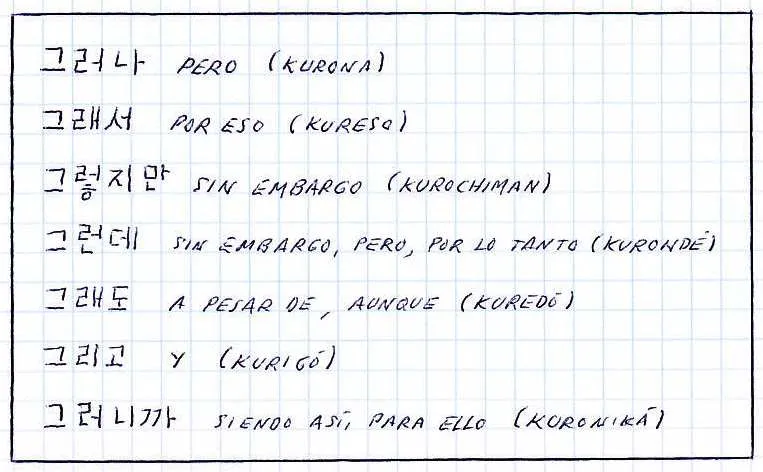 그러나 PERO (KURONA)
그래서 POR ESO (KURESO)
그렇지만 SIN EMBARGO (KUROCHIMAN)
그런데 SIN EMBARGO, PERO, POR LO TANTO (KURONDÉ)
그래도 A PESAR DE, AUNQUE (KUREDÓ)
그리고 Y (KURIGÓ)
그러니까 SIENDO ASÍ, PARA ELLO (KURONIKÁ)